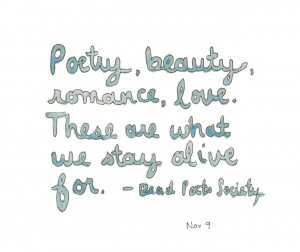 Poetry, beauty,
romance, love.
These are what
we stay alive
for. - Dead Poets Society
Nov 9